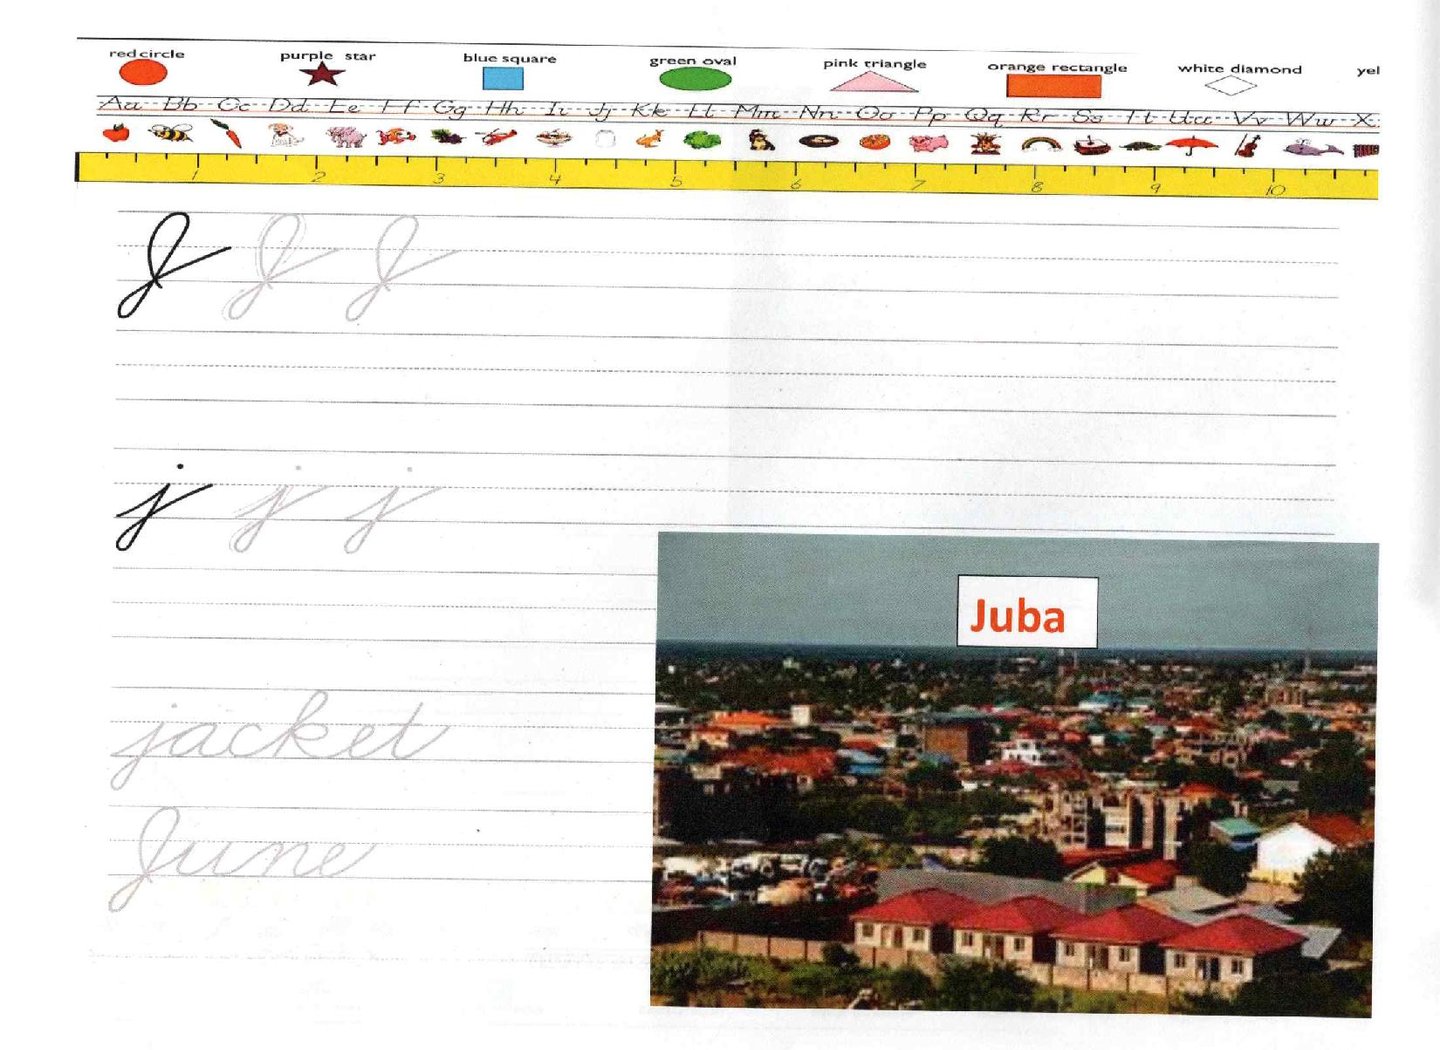 red circle purple star blue square green oval pink triangle orange rectangle white diamond yel
Aa Bb Cc Dd Ee Ff Gg Hh Ii Jj Kk Ll Mm Nn Oo Pp Qq Rr Ss Tt Uu Vv Ww X
1 2 3 4 5 6 7 8 9 10
J J J
j j j
Juba
jacket
June